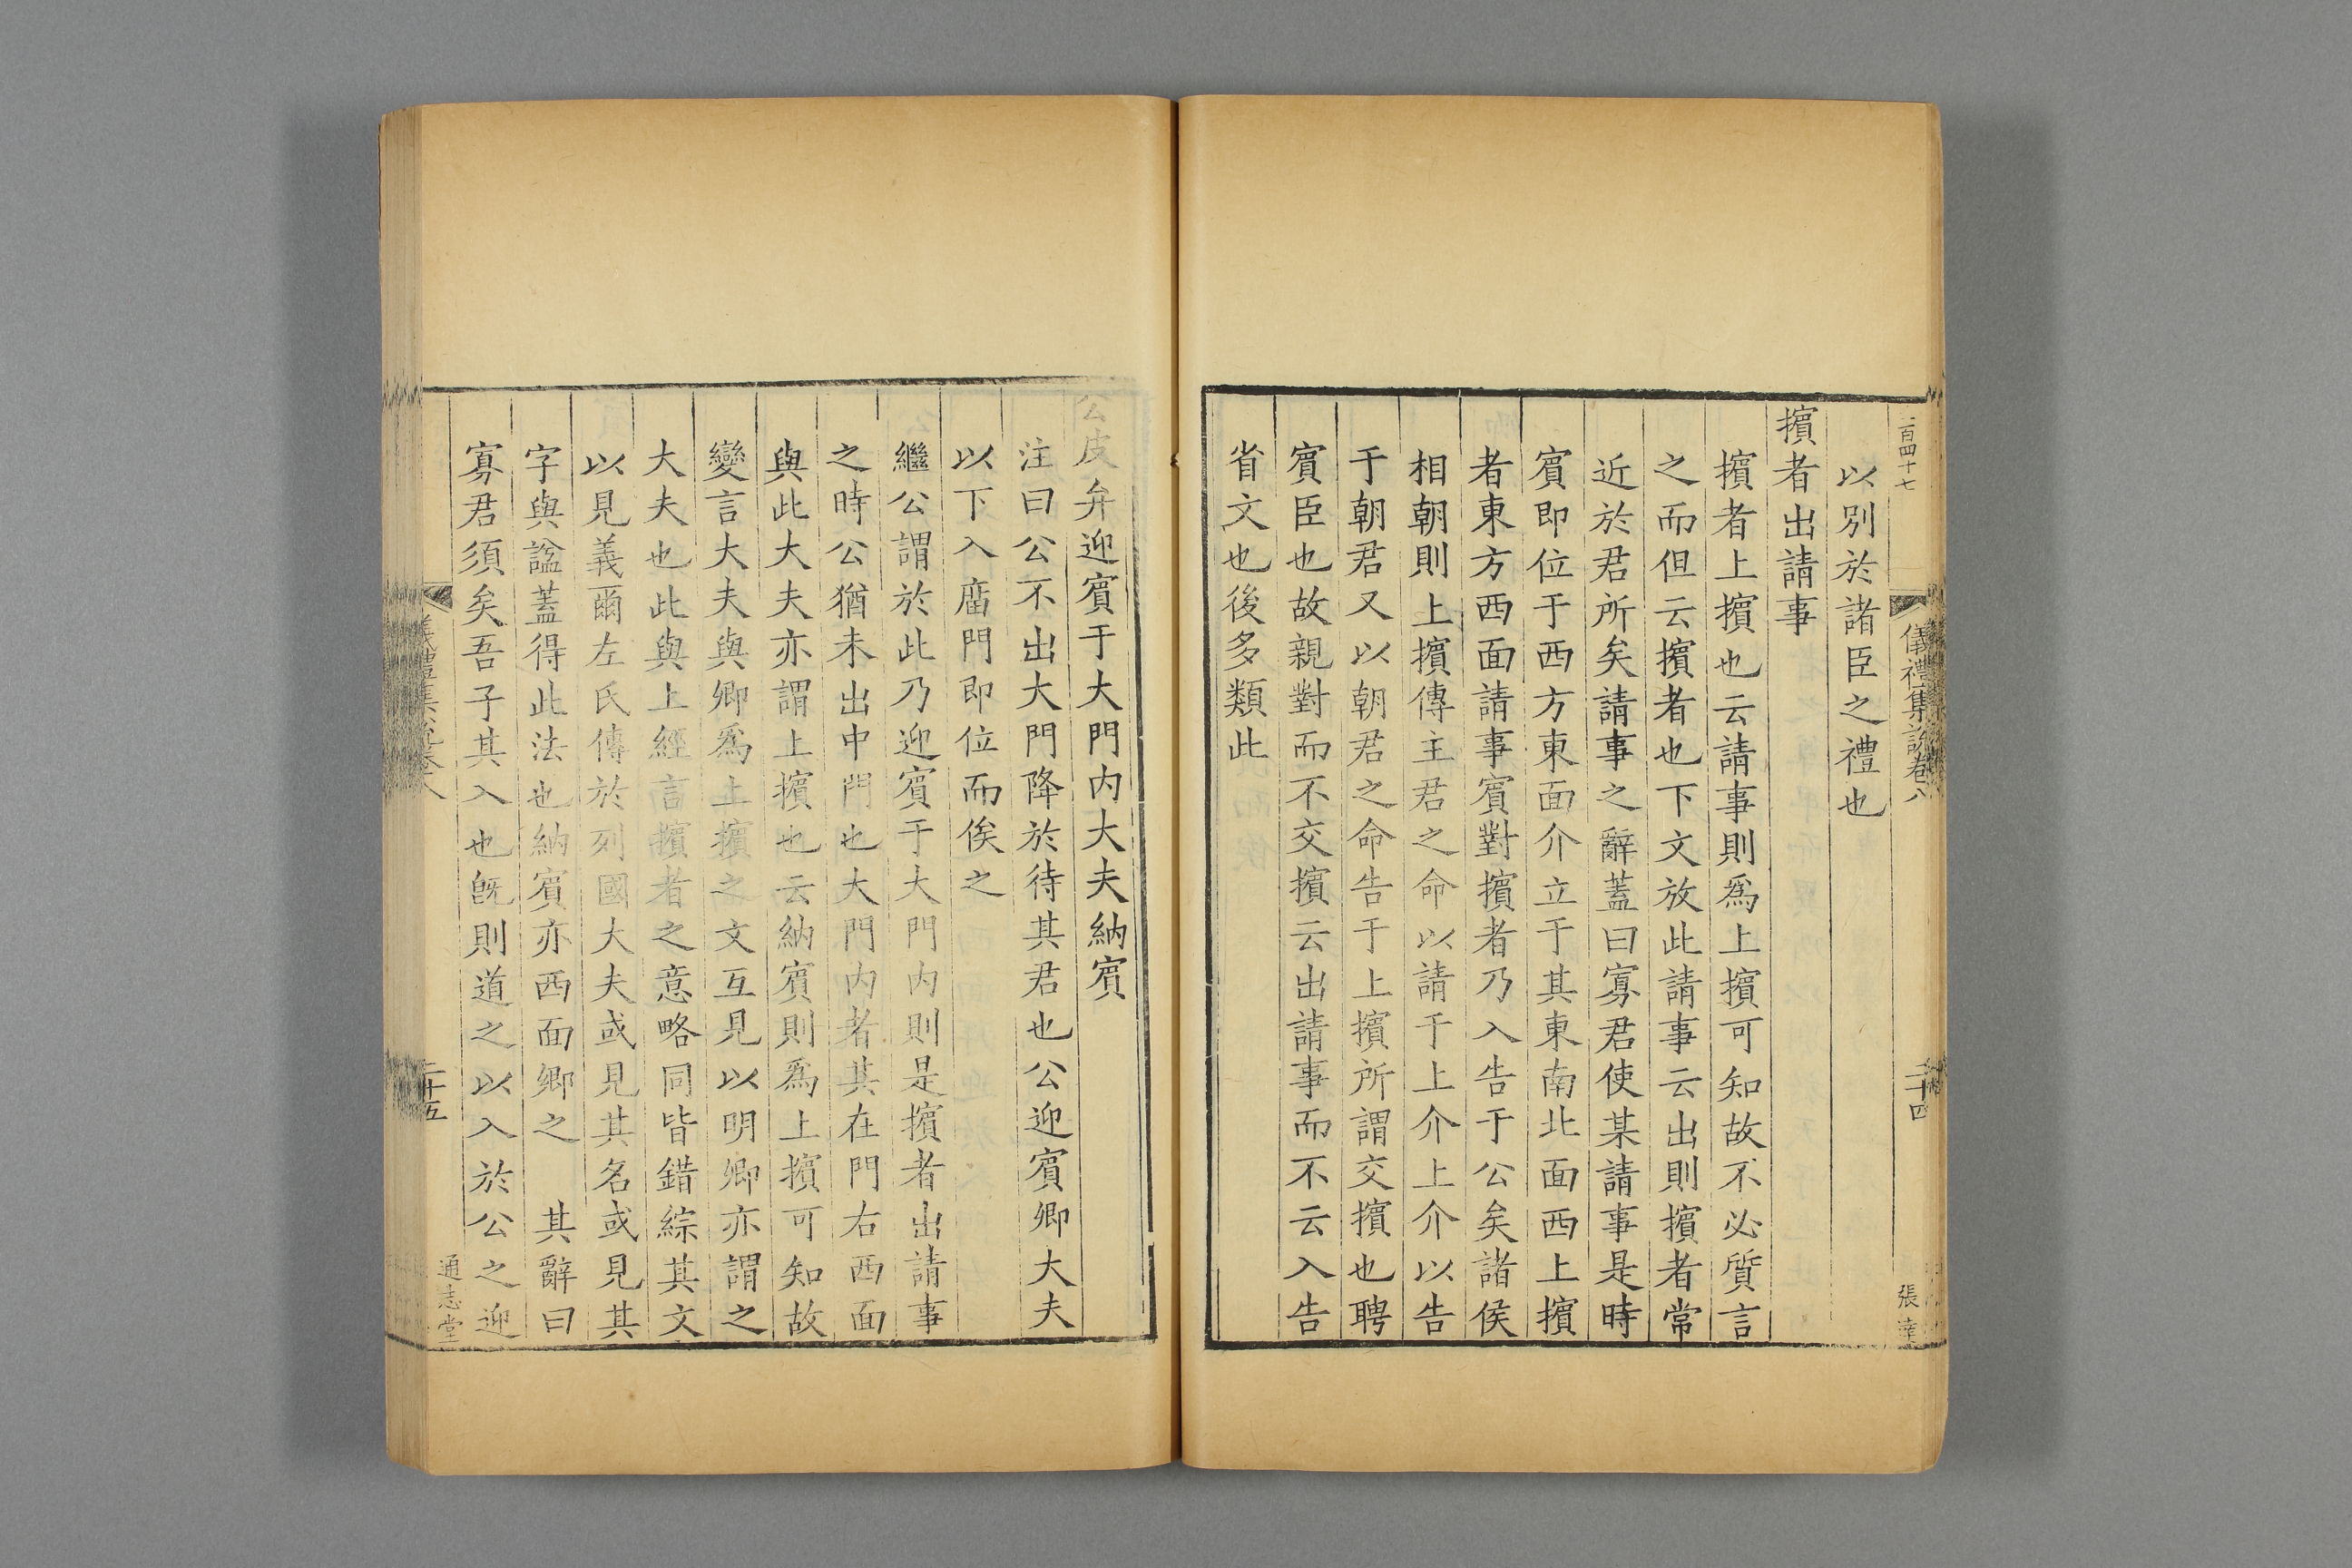 儀禮集說卷八
二十四
以別於諸臣之禮也
擯者出請事
擯者上擯也云請事則爲上擯可知故不必質言
之而但云擯者也下文放此請事云出則擯者常
近於君所矣請事之辭蓋曰寡君使某請事是時
賓即位于西方東面介立于其東南北面西上擯
者東方西面請事賓對擯者乃入告于公矣諸侯
相朝則上擯傳主君之命以請于上介上介以告
于朝君又以朝君之命告于上擯所謂交擯也聘
賓臣也故親對而不交擯云出請事而不云入告
省文也後多類此
公皮弁迎賓于大門內大夫納賓
注曰公不出大門降於待其君也公迎賓卿大夫
以下入廟門即位而俟之
繼公謂於此乃迎賓于大門內則是擯者出請事
之時公猶未出中門也大門內者其在門右西面
與此大夫亦謂上擯也云納賓則爲上擯可知故
變言大夫與卿爲上擯之文互見以明卿亦謂之
大夫也此與上經言擯者之意略同皆錯綜其文
以見義爾左氏傳於列國大夫或見其名或見其
字與諡蓋得此法也納賓亦西面鄉之 其辭曰
寡君須矣吾子其入也旣則道之以入於公之迎
二十五
通志堂